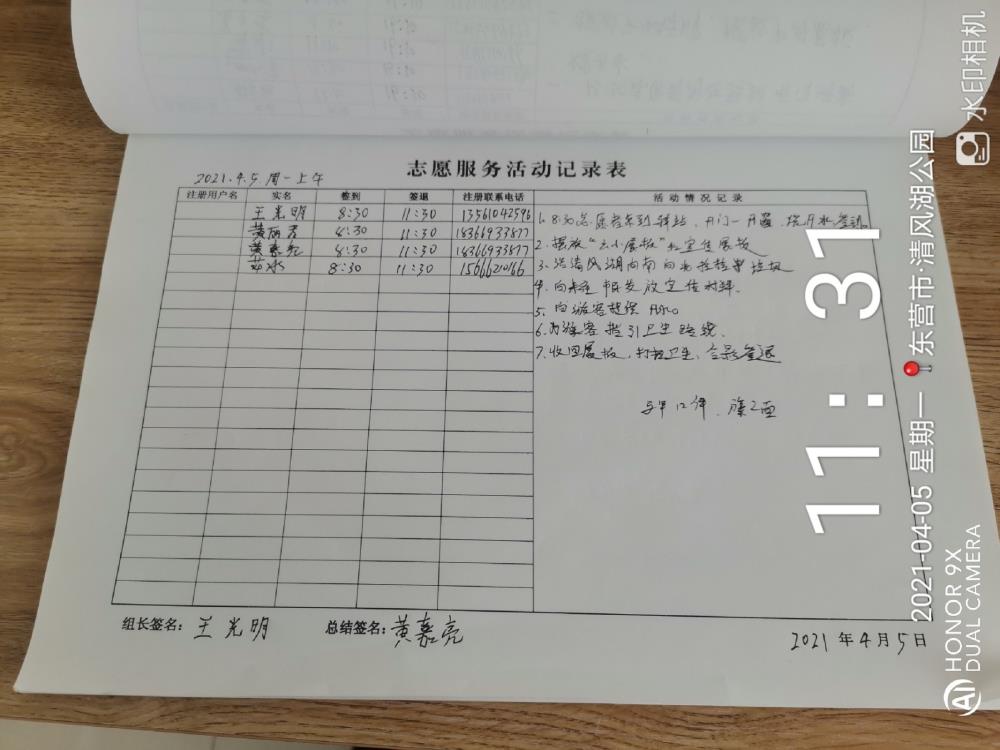 志愿服务活动记录表
2021.4.5.周一上午
注册用户名 实名 签到 签退 注册联系电话 活动情况记录
王光明 8:30 11:30 13561042596
黄丽君 8:30 11:30 18366933877
黄嘉亮 8:30 11:30 18366933877
冰 8:30 11:30 15666210166
1. 8:30志愿者来到驿站,开门一开窗,
2. 摆放"展板"和宣传展板
3. 沿清风湖向南向北捡拾垃圾
4. 向发放宣传材料.
5. 向游客提供
6. 为游客指引卫生路线.
7. 收回展板,打扫卫生,合影签退
组长签名: 王光明 总结签名: 黄嘉亮
2021年4月5日
11:31
2021-04-05 星期一 东营市·清风湖公园
水印相机
HONOR 9X
DUAL CAMERA
AI